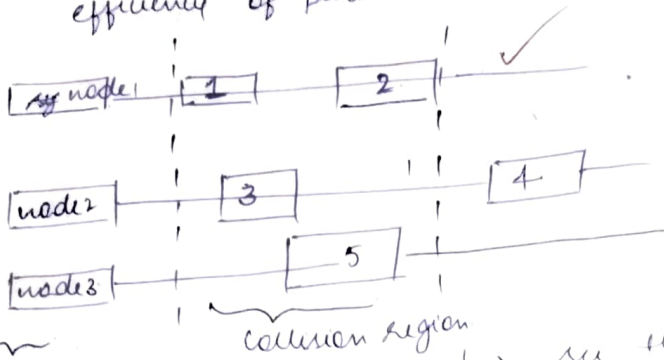 efficiency of
node1 1 2
node2 3 4
node3 5
collision region